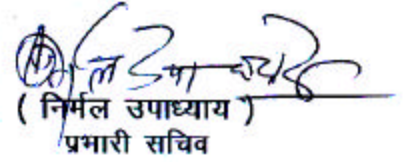 ( निर्मल उपाध्याय )
प्रभारी सचिव